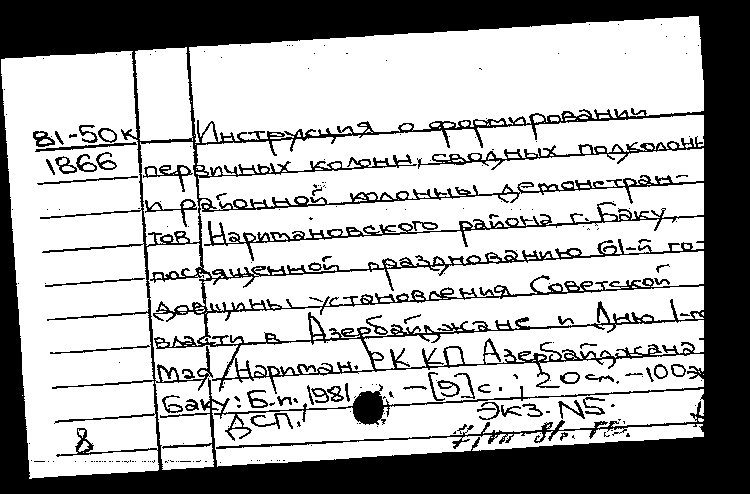 81-50к Инструкция о формировании
1866 первичных колонн, сводных подколонн
и районной колонны демонстран-
тов Наримановского района г. Баку,
посвященной празднованию 61-й го-
довщины установления Советской
власти в Азербайджане и Дню 1-го
мая / Нариман. РК КП Азербайджана. -
Баку: Б.и., 1981. - [9] с.; 20 см. - 100э
ДСП. Экз. N5.
8